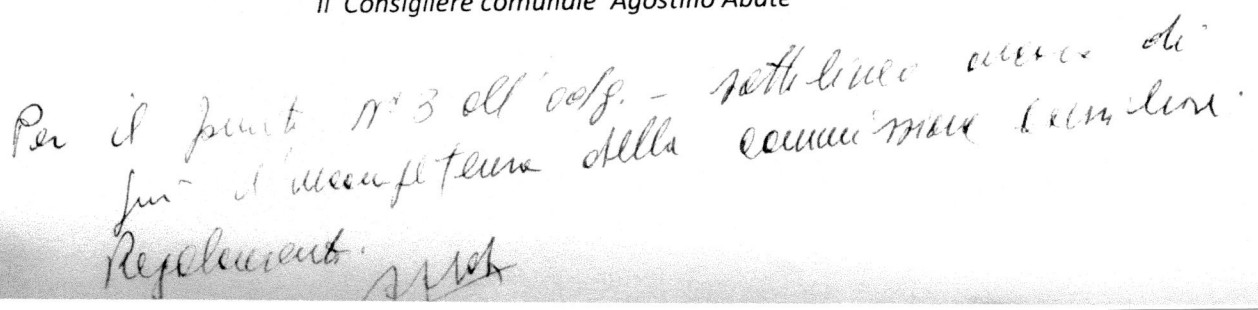 Il Consigliere comunale Agostino Abate
Per il punto N° 3 all'odg. - sottolineo ancora di
più l'incompetenza della commissione consiliare
Regolamento.